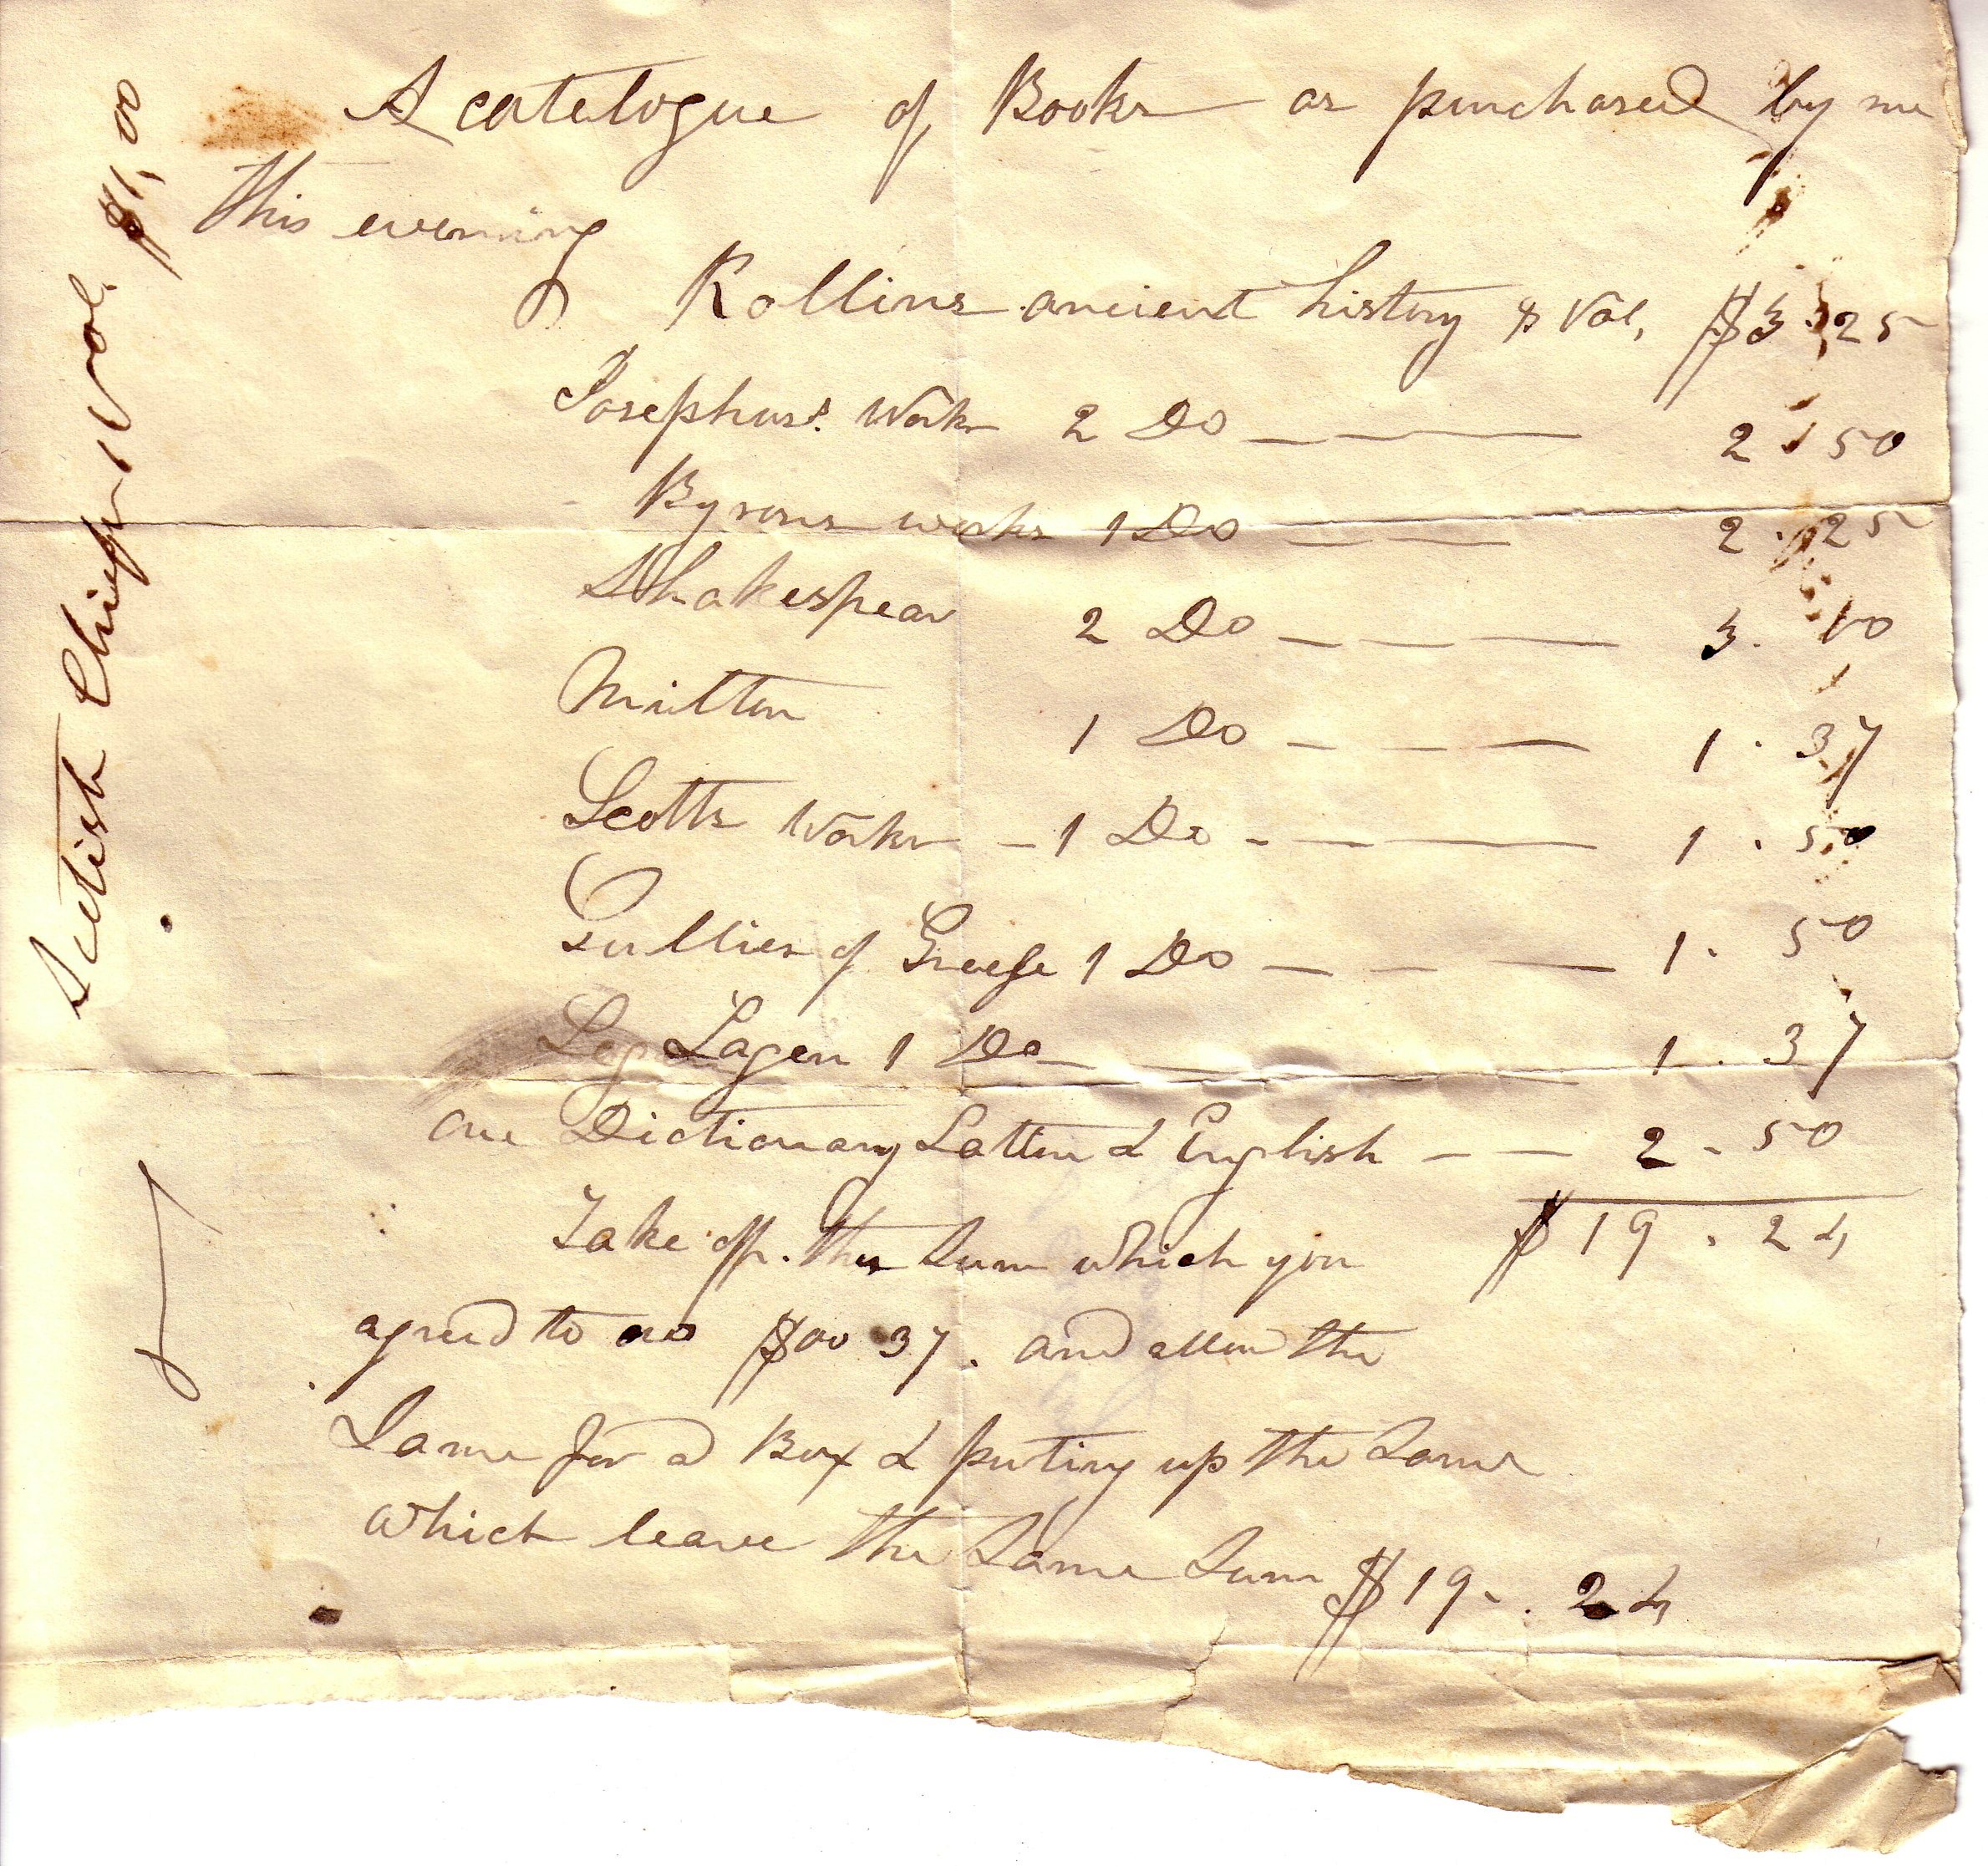 A catelogue of Books as purchased by me
this evening
Rollins ancient history 8 Vol, $3.25
Josephus's Works 2 Do — — — 2.50
Byrons works 1 Do — — 2.25
Shakespear 2 Do — — — 3. 00
Milton 1 Do — — — 1.37
Scotts Works - 1 Do - — — 1.50
Gullies of Greese 1 Do — — — 1.50
1 Do — — — 1.37
one Dictionary Latten & English — — 2.50
$19.24
Take off. the sum which you
agreed to $00 37. and allow the
Same for a Box & puting up the Same
which leave the Same Sum $19.24
Scotish Chiefs 1 Vol. $1,00